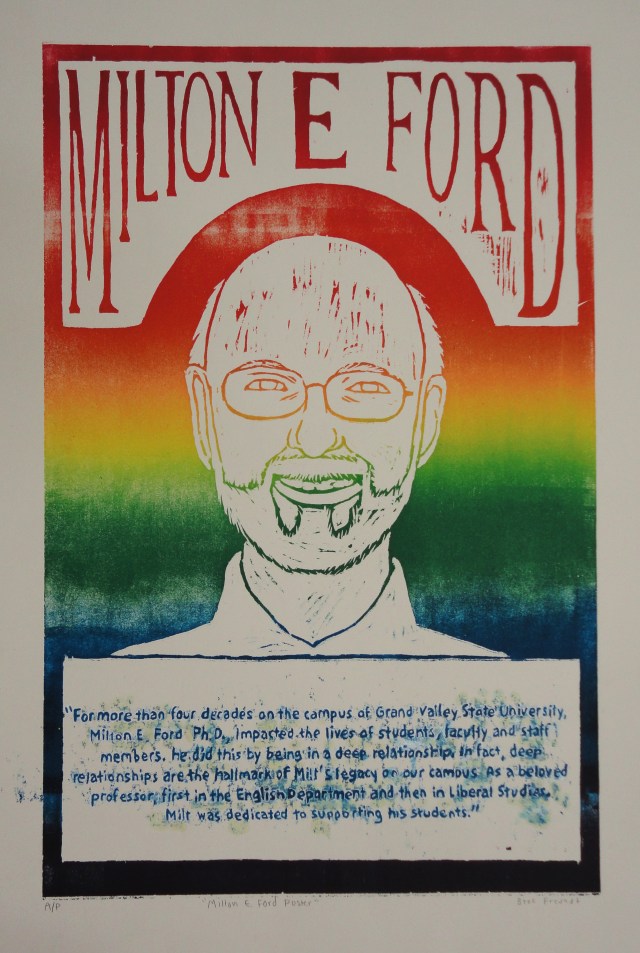 MILTON E FORD
"For more than four decades on the campus of Grand Valley State University,
Milton E. Ford Ph.D., impacted the lives of students, faculty and staff
members. he did this by being in a deep relationship. In fact, deep
relationships are the hallmark of Milt's legacy on our campus. As a beloved
professor, first in the English Department and then in Liberal Studies,
Milt was dedicated to supporting his students."
A/P "Milton E. Ford Power"